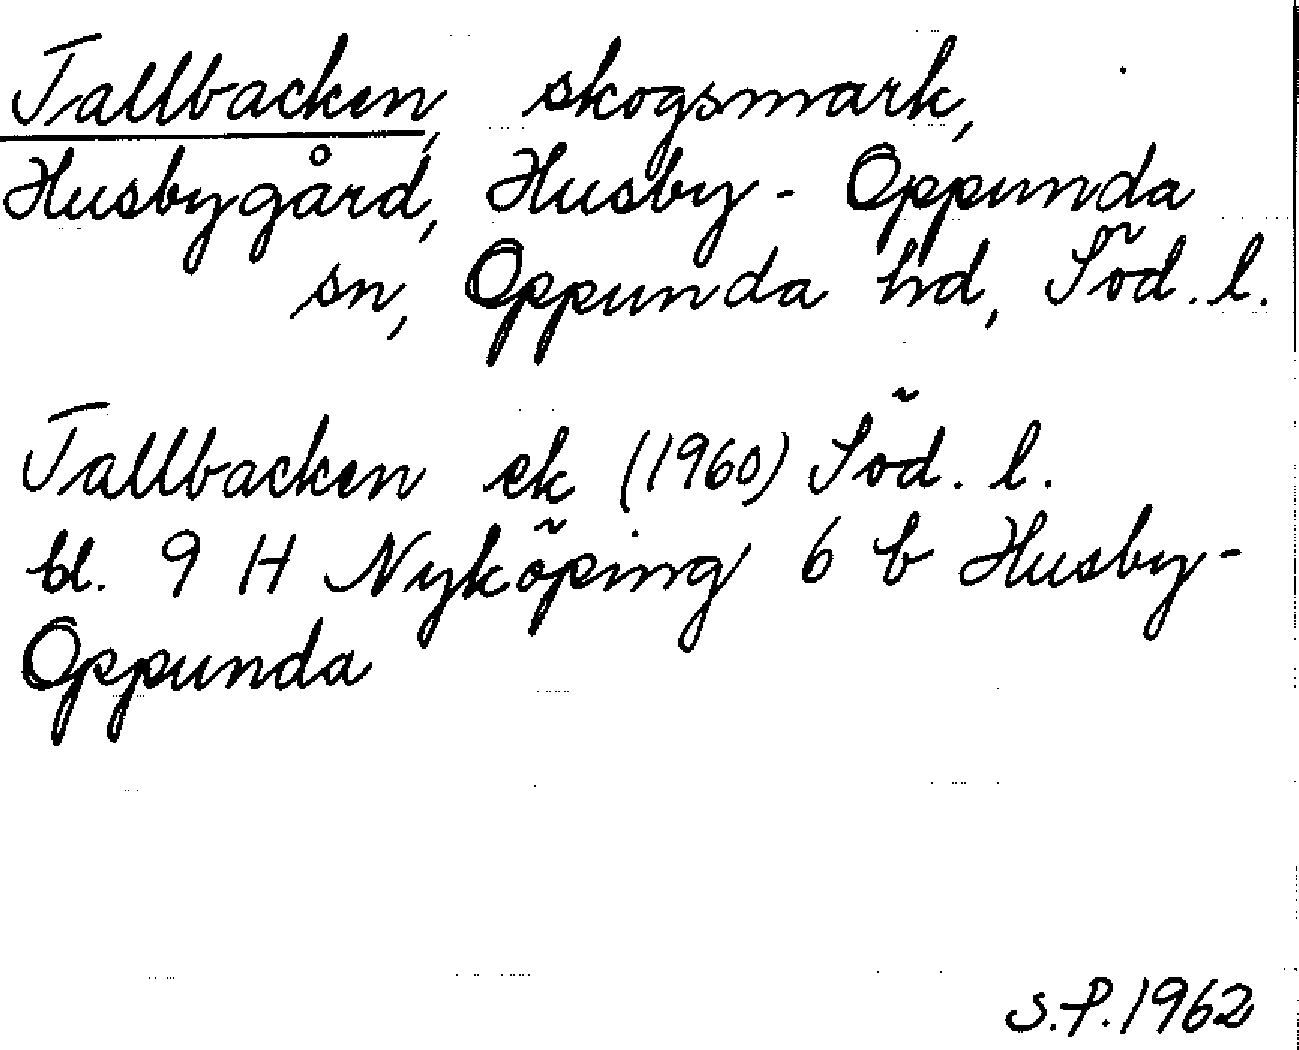 Tallbacken, skogsmark,
Husbygård, Husby-Oppunda
sn, Oppunda hd, Söd. l.
Tallbacken ek (1960) Söd. l.
bl. 9 H Nyköping 6 b Husby-
Oppunda
S.P. 1962